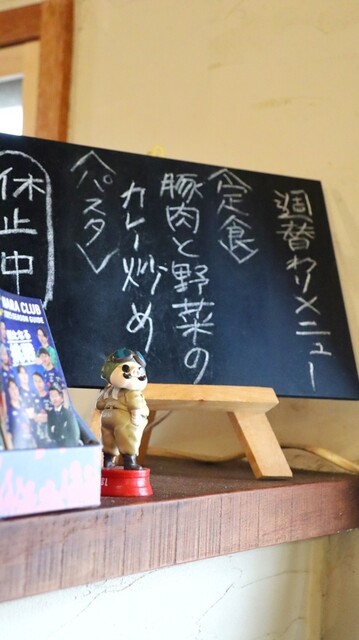 週替わりメニュー
〈定食〉
豚肉と野菜の
カレー炒め
〈パスタ〉
休止中
AMA CLUB
SEASON GUIDE